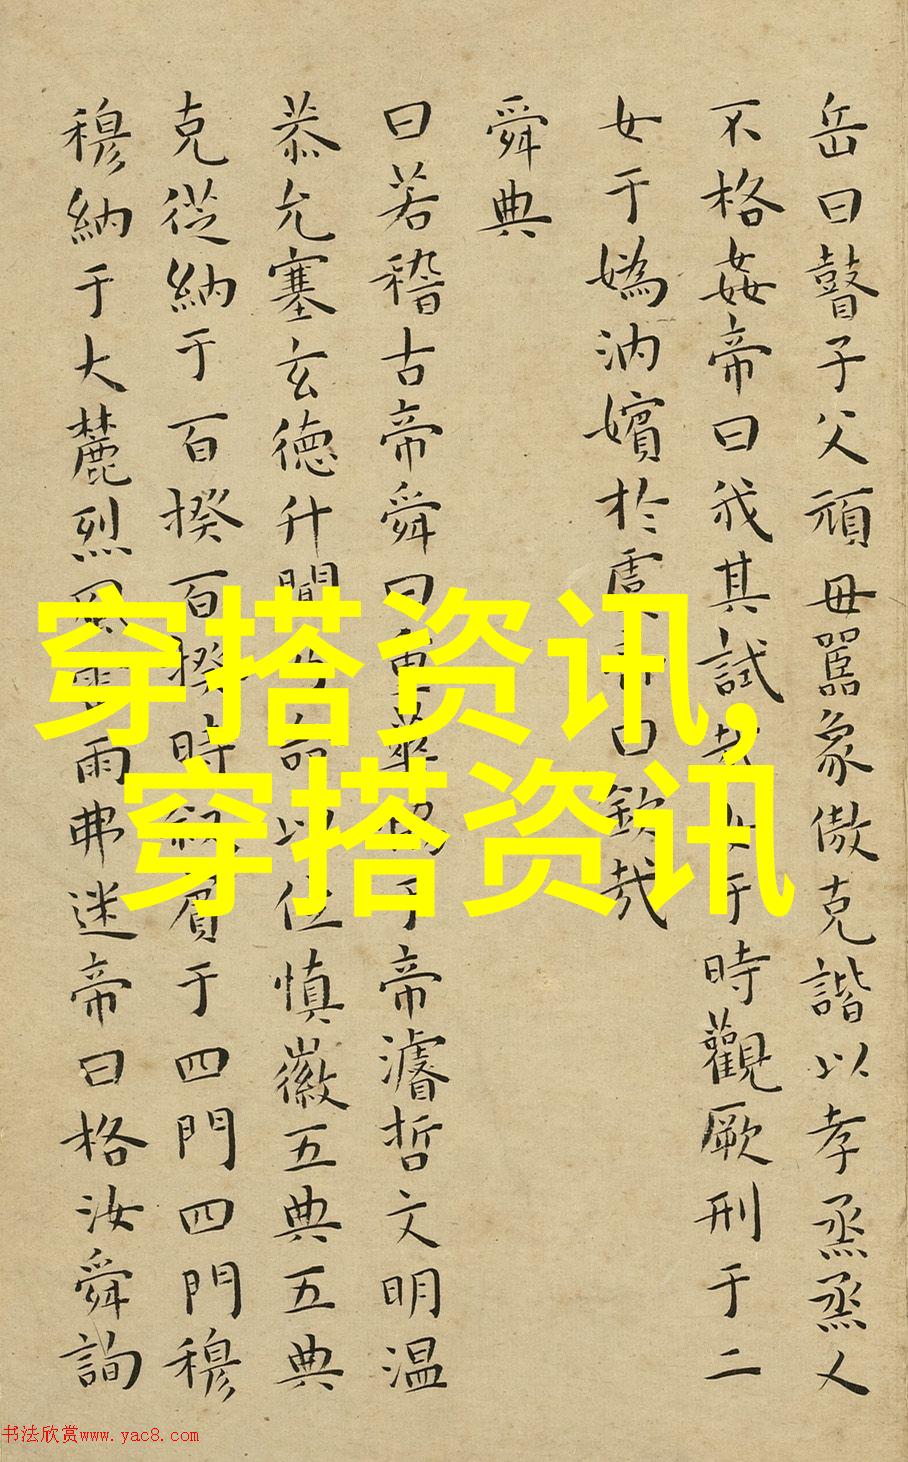 岳曰瞽子父頑毋嚚象傲克諧以孝烝烝乂
不格姦帝曰我其試哉女于時觀厥刑于二
女于媯汭嬪於虞帝曰欽哉
舜典
曰若稽古帝舜曰重華協于帝濬哲文明温
恭允塞玄德升聞乃命以位慎徽五典五典
克從納于百揆百揆時敘賓于四門四門穆
穆納于大麓烈風雷雨弗迷帝曰格汝舜詢
穿搭资讯,
穿搭资讯
书法欣赏www.yac8.com